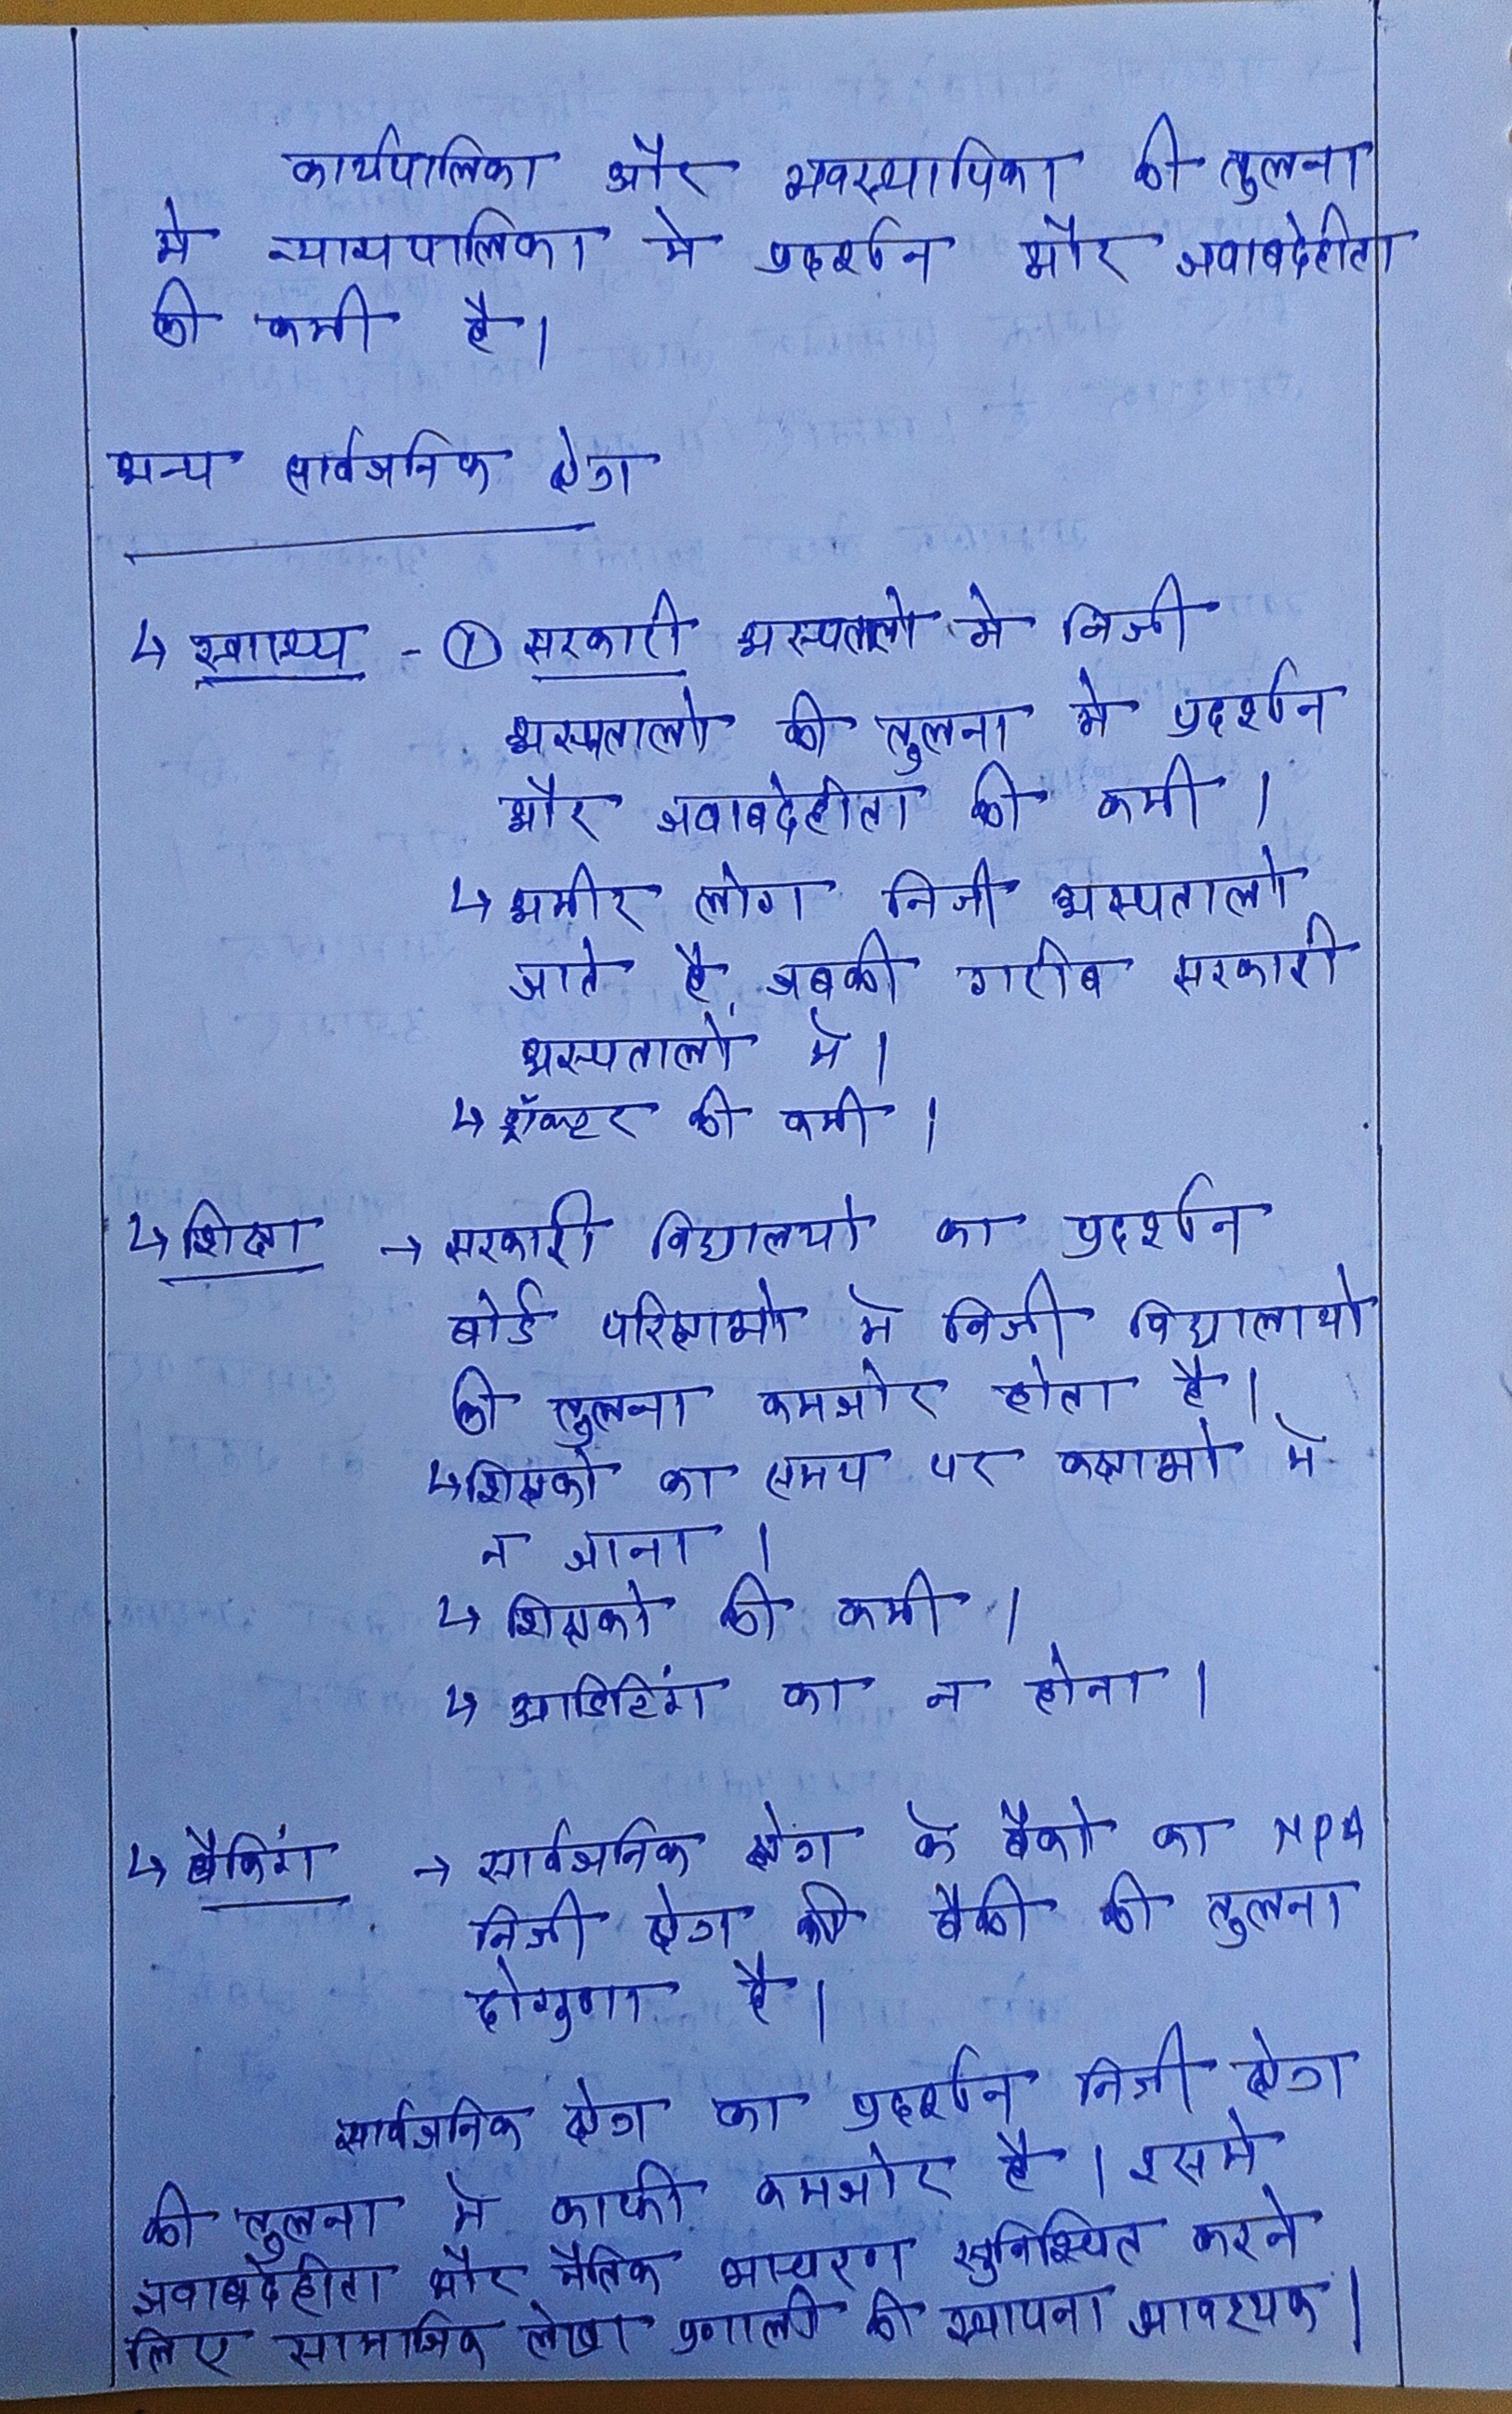 कार्यपालिका और व्यवस्थापिका की तुलना
मे न्यायपालिका मे प्रदर्शन और जवाबदेहीता
की कमी है।
अन्य सार्वजनिक क्षेत्र
↳ स्वास्थ्य - ① सरकारी अस्पतालो मे निजी
अस्पतालो की तुलना मे प्रदर्शन
और जवाबदेहीता की कमी।
↳ अमीर लोग निजी अस्पतालो
जाते है, जबकी गरीब सरकारी
अस्पतालों मे।
↳ डॉक्टर की कमी।
↳ शिक्षा → सरकारी विद्यालयो का प्रदर्शन
बोर्ड परिक्षाओ मे निजी विद्यालायो
की तुलना कमजोर होता है।
↳ शिक्षको का समय पर कक्षाओ मे
न जाना।
↳ शिक्षको की कमी।
↳ आडिटिंग का न होना।
↳ बैकिंग → सार्वजनिक क्षेत्र के बैको का NPA
निजी क्षेत्र की बैकी की तुलना
दोगुणा है।
सार्वजनिक क्षेत्र का प्रदर्शन निजी क्षेत्र
की तुलना मे काफी कमजोर है। इसमे
जवाबदेहीता और नैतिक आचरण सुनिश्चित करने
लिए सामाजिक लेखा प्रणाली की स्थापना आवश्यक।